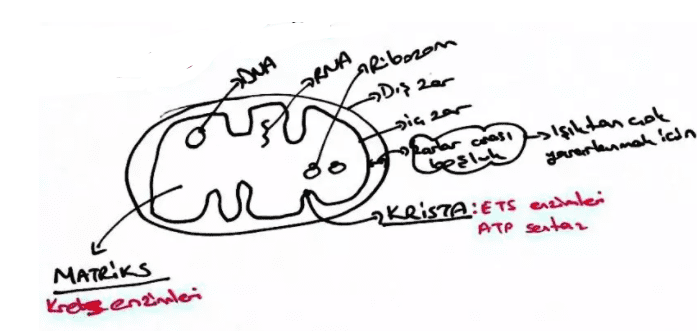 DNA
RNA
Ribozom
Dış zar
iç zar
zarlar arası
boşluk
Işıktan çok
yararlanmak icin
KRİSTA: ETS enzimleri
ATP sentaz
MATRİKS
Krebs enzimleri